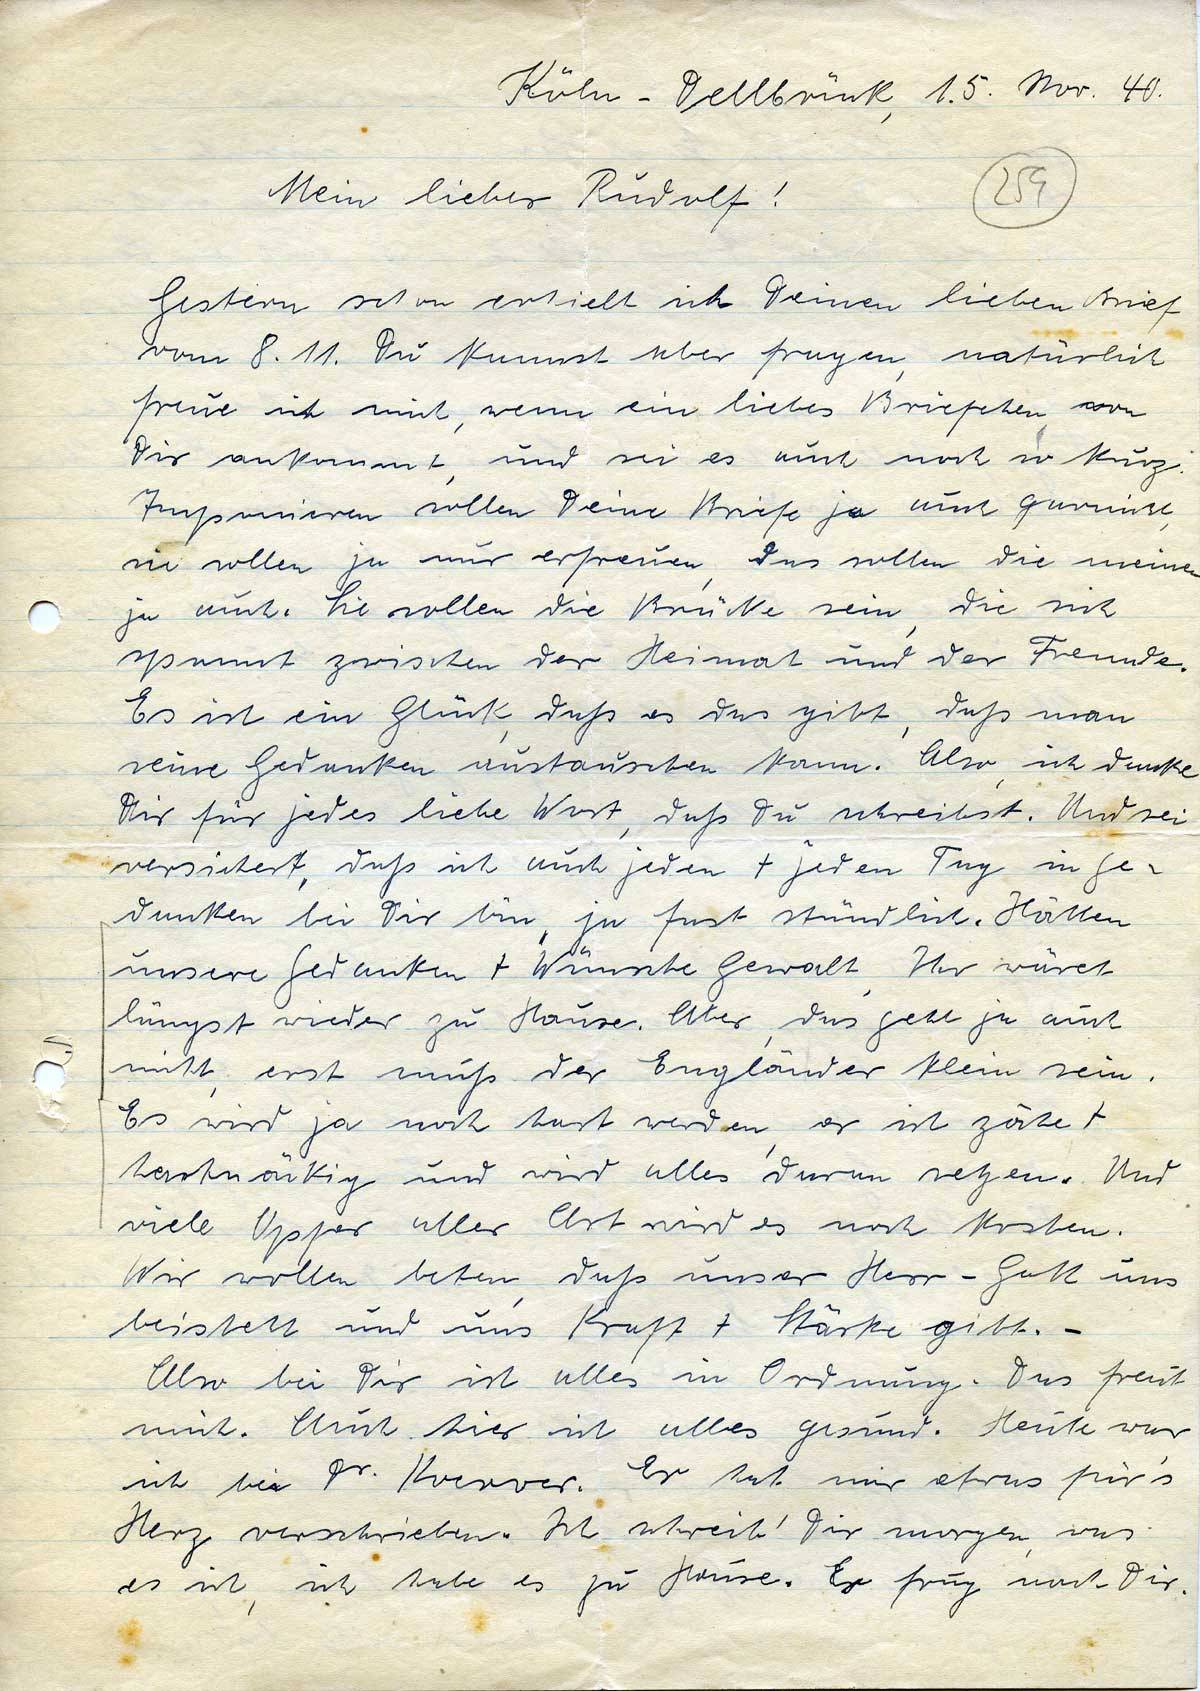 Köln-Dellbrück, 15. Nov. 40.
259
Mein lieber Rudolf!
Gestern schon erhielt ich Deinen lieben Brief
vom 8.11. Du kannst aber fragen, natürlich
freue ich mich, wenn ein liebes Briefchen von
Dir ankommt, und sei es auch noch so kurz.
Imponieren sollen Deine Briefe ja auch garnicht,
sie sollen ja nur erfreuen, das sollen die meinen
ja auch. Sie sollen die Brücke sein, die sich
spannt zwischen der Heimat und der Fremde.
Es ist ein Glück, daß es das gibt, daß man
seine Gedanken austauschen kann. Also, ich danke
Dir für jedes liebe Wort, daß Du schreibst. Und sei
versichert, daß ich auch jeden + jeden Tag in Ge-
danken bei Dir bin, ja fast stündlich. Hätten
unsere Gedanken + Wünsche Gewalt, Ihr wäret
längst wieder zu Hause. Aber, das geht ja auch
nicht, erst muß der Engländer klein sein.
Es wird ja noch hart werden, er ist zähe +
hartnäckig und wird alles daran setzen. Und
viele Opfer aller Art wird es noch kosten.
Wir wollen beten, daß unser Herr-Gott uns
beisteht und uns Kraft + Stärke gibt. -
Also bei Dir ist alles in Ordnung. Das freut
mich. Auch hier ist alles gesund. Heute war
ich bei Dr. Er hat mir etwas für's
Herz verschrieben. Ich schreib' Dir morgen, was
es ist, ich habe es zu Hause. Er frug nach Dir.